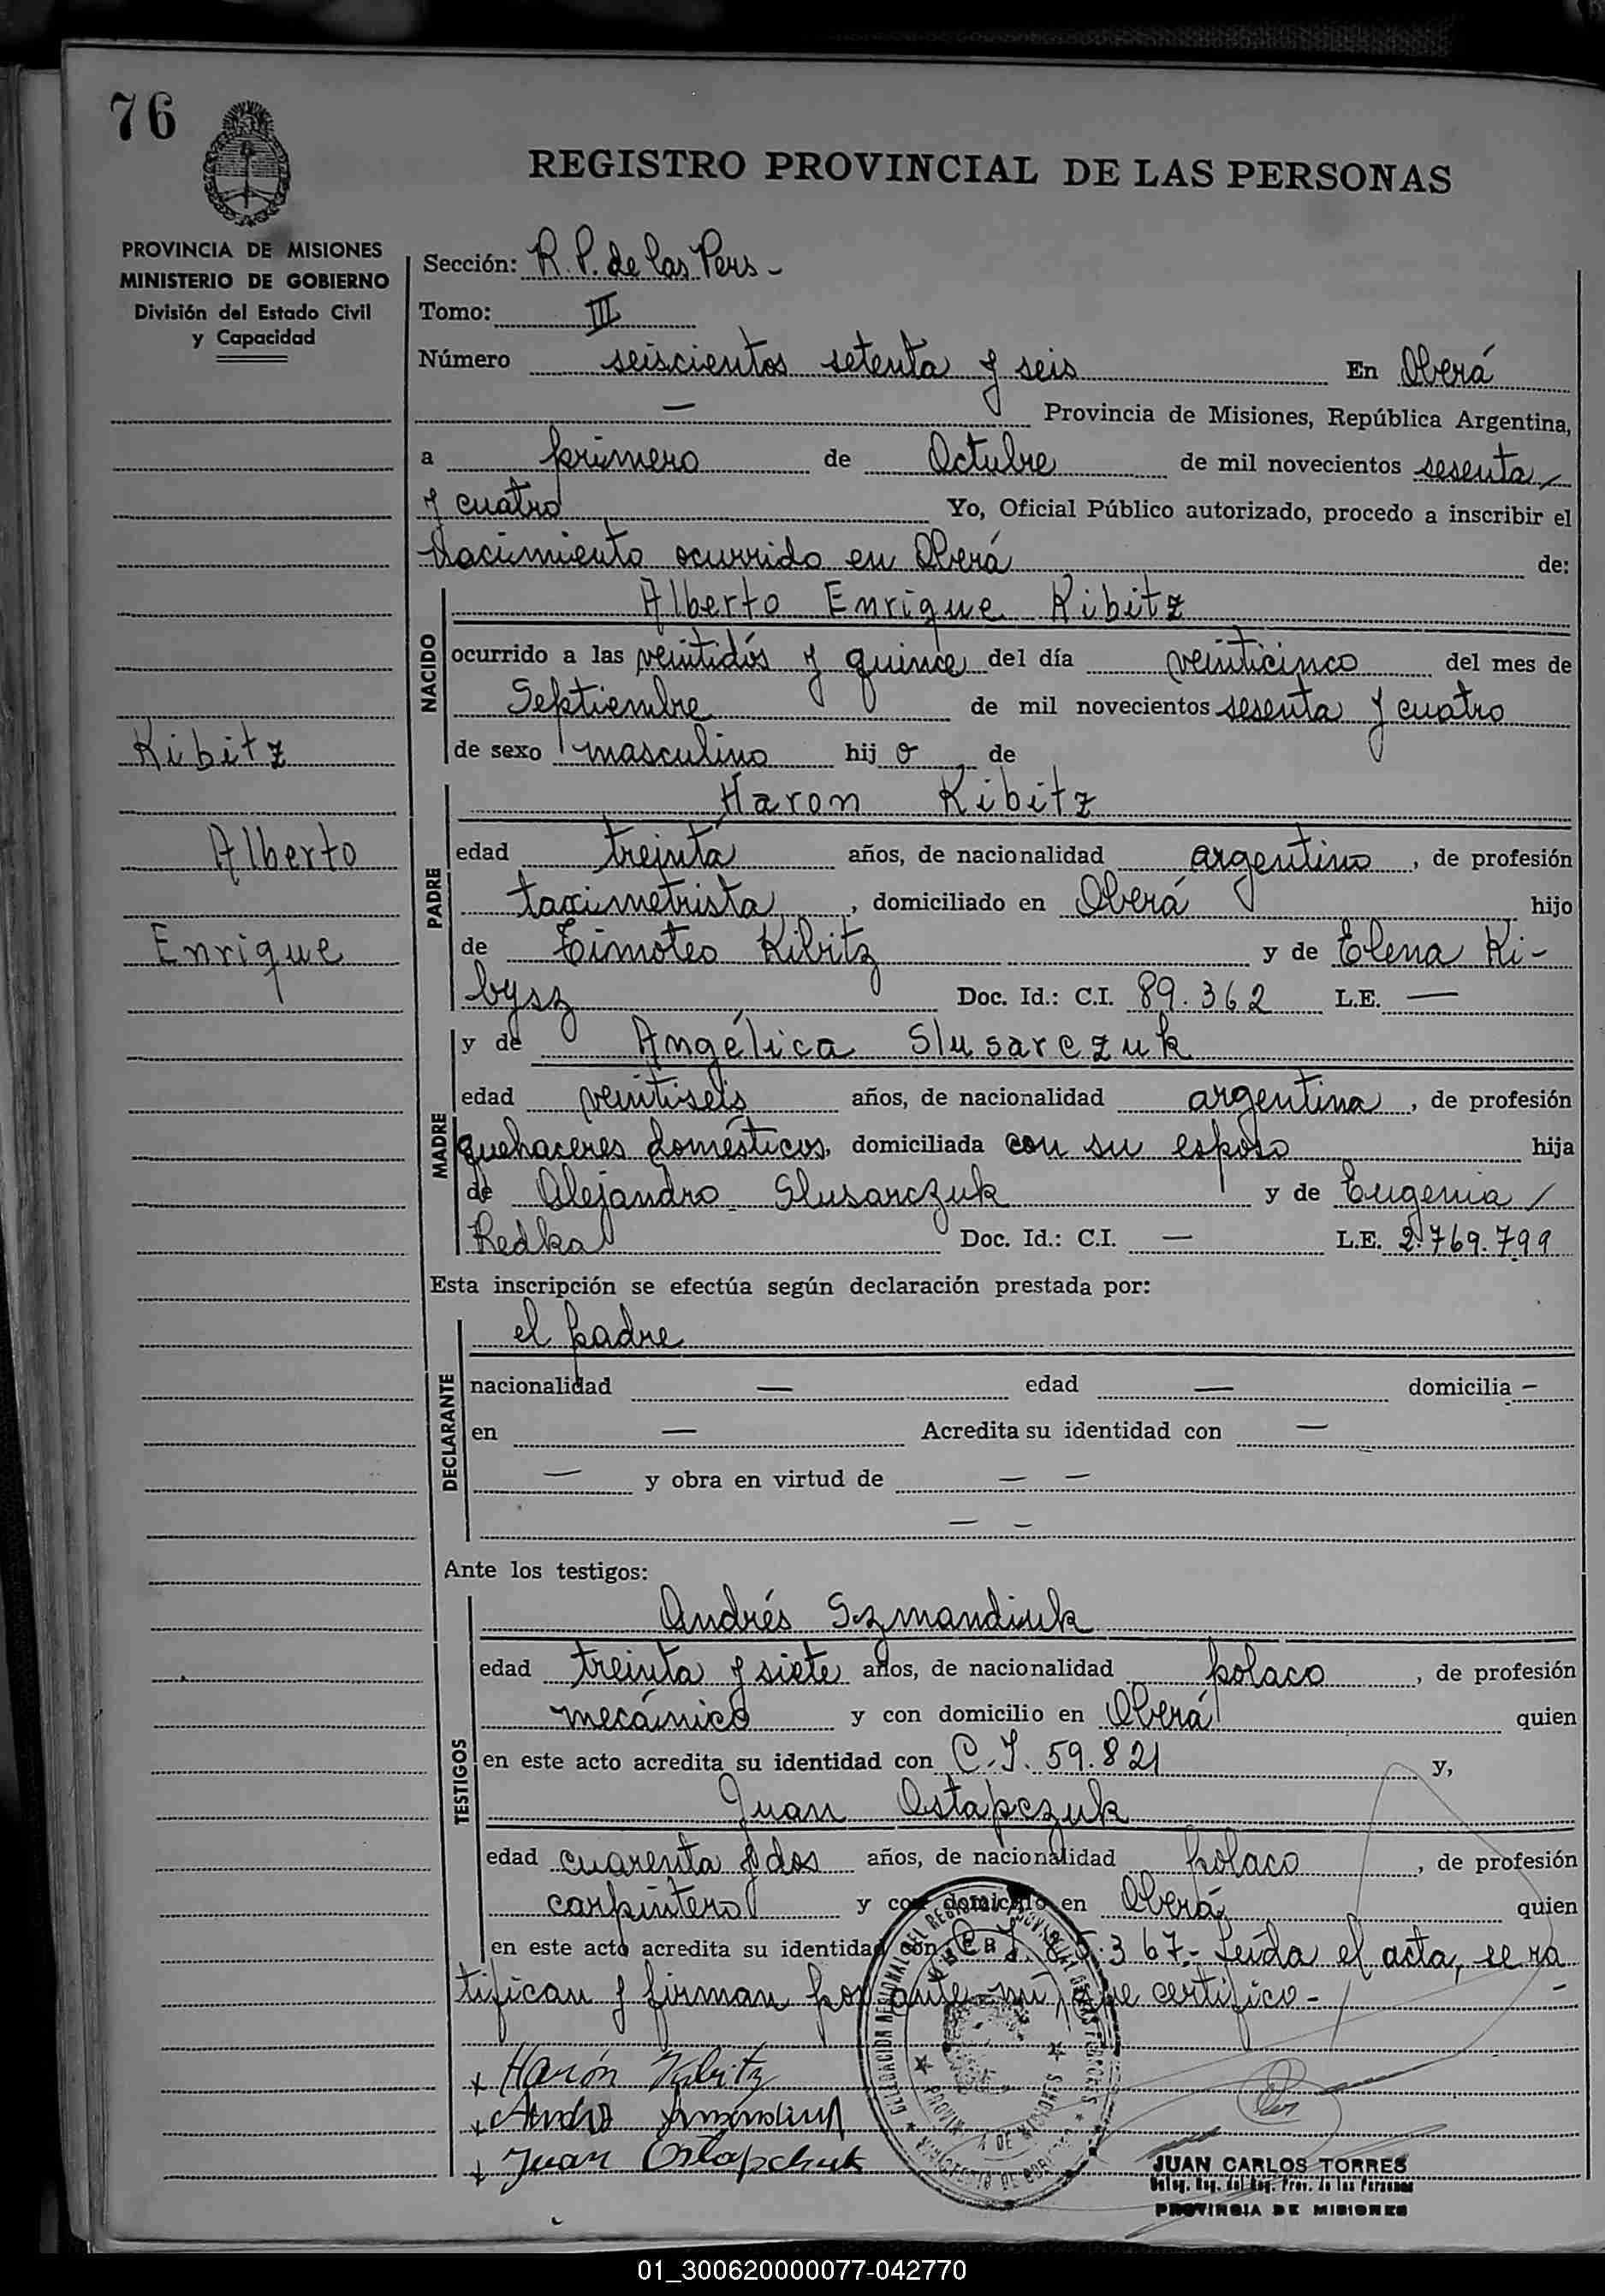 76
REGISTRO PROVINCIAL DE LAS PERSONAS
PROVINCIA DE MISIONES
MINISTERIO DE GOBIERNO
División del Estado Civil
y Capacidad
Sección: R. P. de las Pers -
Tomo: III
Número seiscientos setenta y seis En Oberá
— Provincia de Misiones, República Argentina,
a primero de Octubre de mil novecientos sesenta
y cuatro Yo, Oficial Público autorizado, procedo a inscribir el
Nacimiento ocurrido en Oberá de:
NACIDO
Alberto Enrique Kibitz
ocurrido a las veintidós y quince del día veinticinco del mes de
Septiembre de mil novecientos sesenta y cuatro
de sexo masculino hij o de
Kibitz
Alberto
Enrique
PADRE
Haron Kibitz
edad treinta años, de nacionalidad argentino, de profesión
taximetrista, domiciliado en Oberá hijo
de Timoteo Kibitz y de Elena Ki-
bysz Doc. Id.: C.I. 89.362 L.E. —
MADRE
y de Angélica Slusarczuk
edad veintiseis años, de nacionalidad argentina, de profesión
quehaceres domésticos, domiciliada con su esposo hija
de Alejandro Slusarczuk y de Eugenia /
Redka Doc. Id.: C.I. — L.E. 2.769.799
Esta inscripción se efectúa según declaración prestada por:
DECLARANTE
el padre
nacionalidad — edad — domicilia -
en — Acredita su identidad con —
— y obra en virtud de — —
— —
Ante los testigos:
TESTIGOS
Andrés Szmandiuk
edad treinta y siete años, de nacionalidad polaco, de profesión
mecánico y con domicilio en Oberá quien
en este acto acredita su identidad con C.I. 59.821 y,
Juan Ostapczuk
edad cuarenta y dos años, de nacionalidad polaco, de profesión
carpintero y con domicilio en Oberá quien
en este acto acredita su identidad con 367.- Leída el acta, se ra
tifican y firman por ante mí, que certifico -
x Harón Kibitz
x
x Juan Ostapchuk
JUAN CARLOS TORRES
Deleg. Reg. del Reg. Prov. de las Personas
PROVINCIA DE MISIONES
01_300620000077-042770